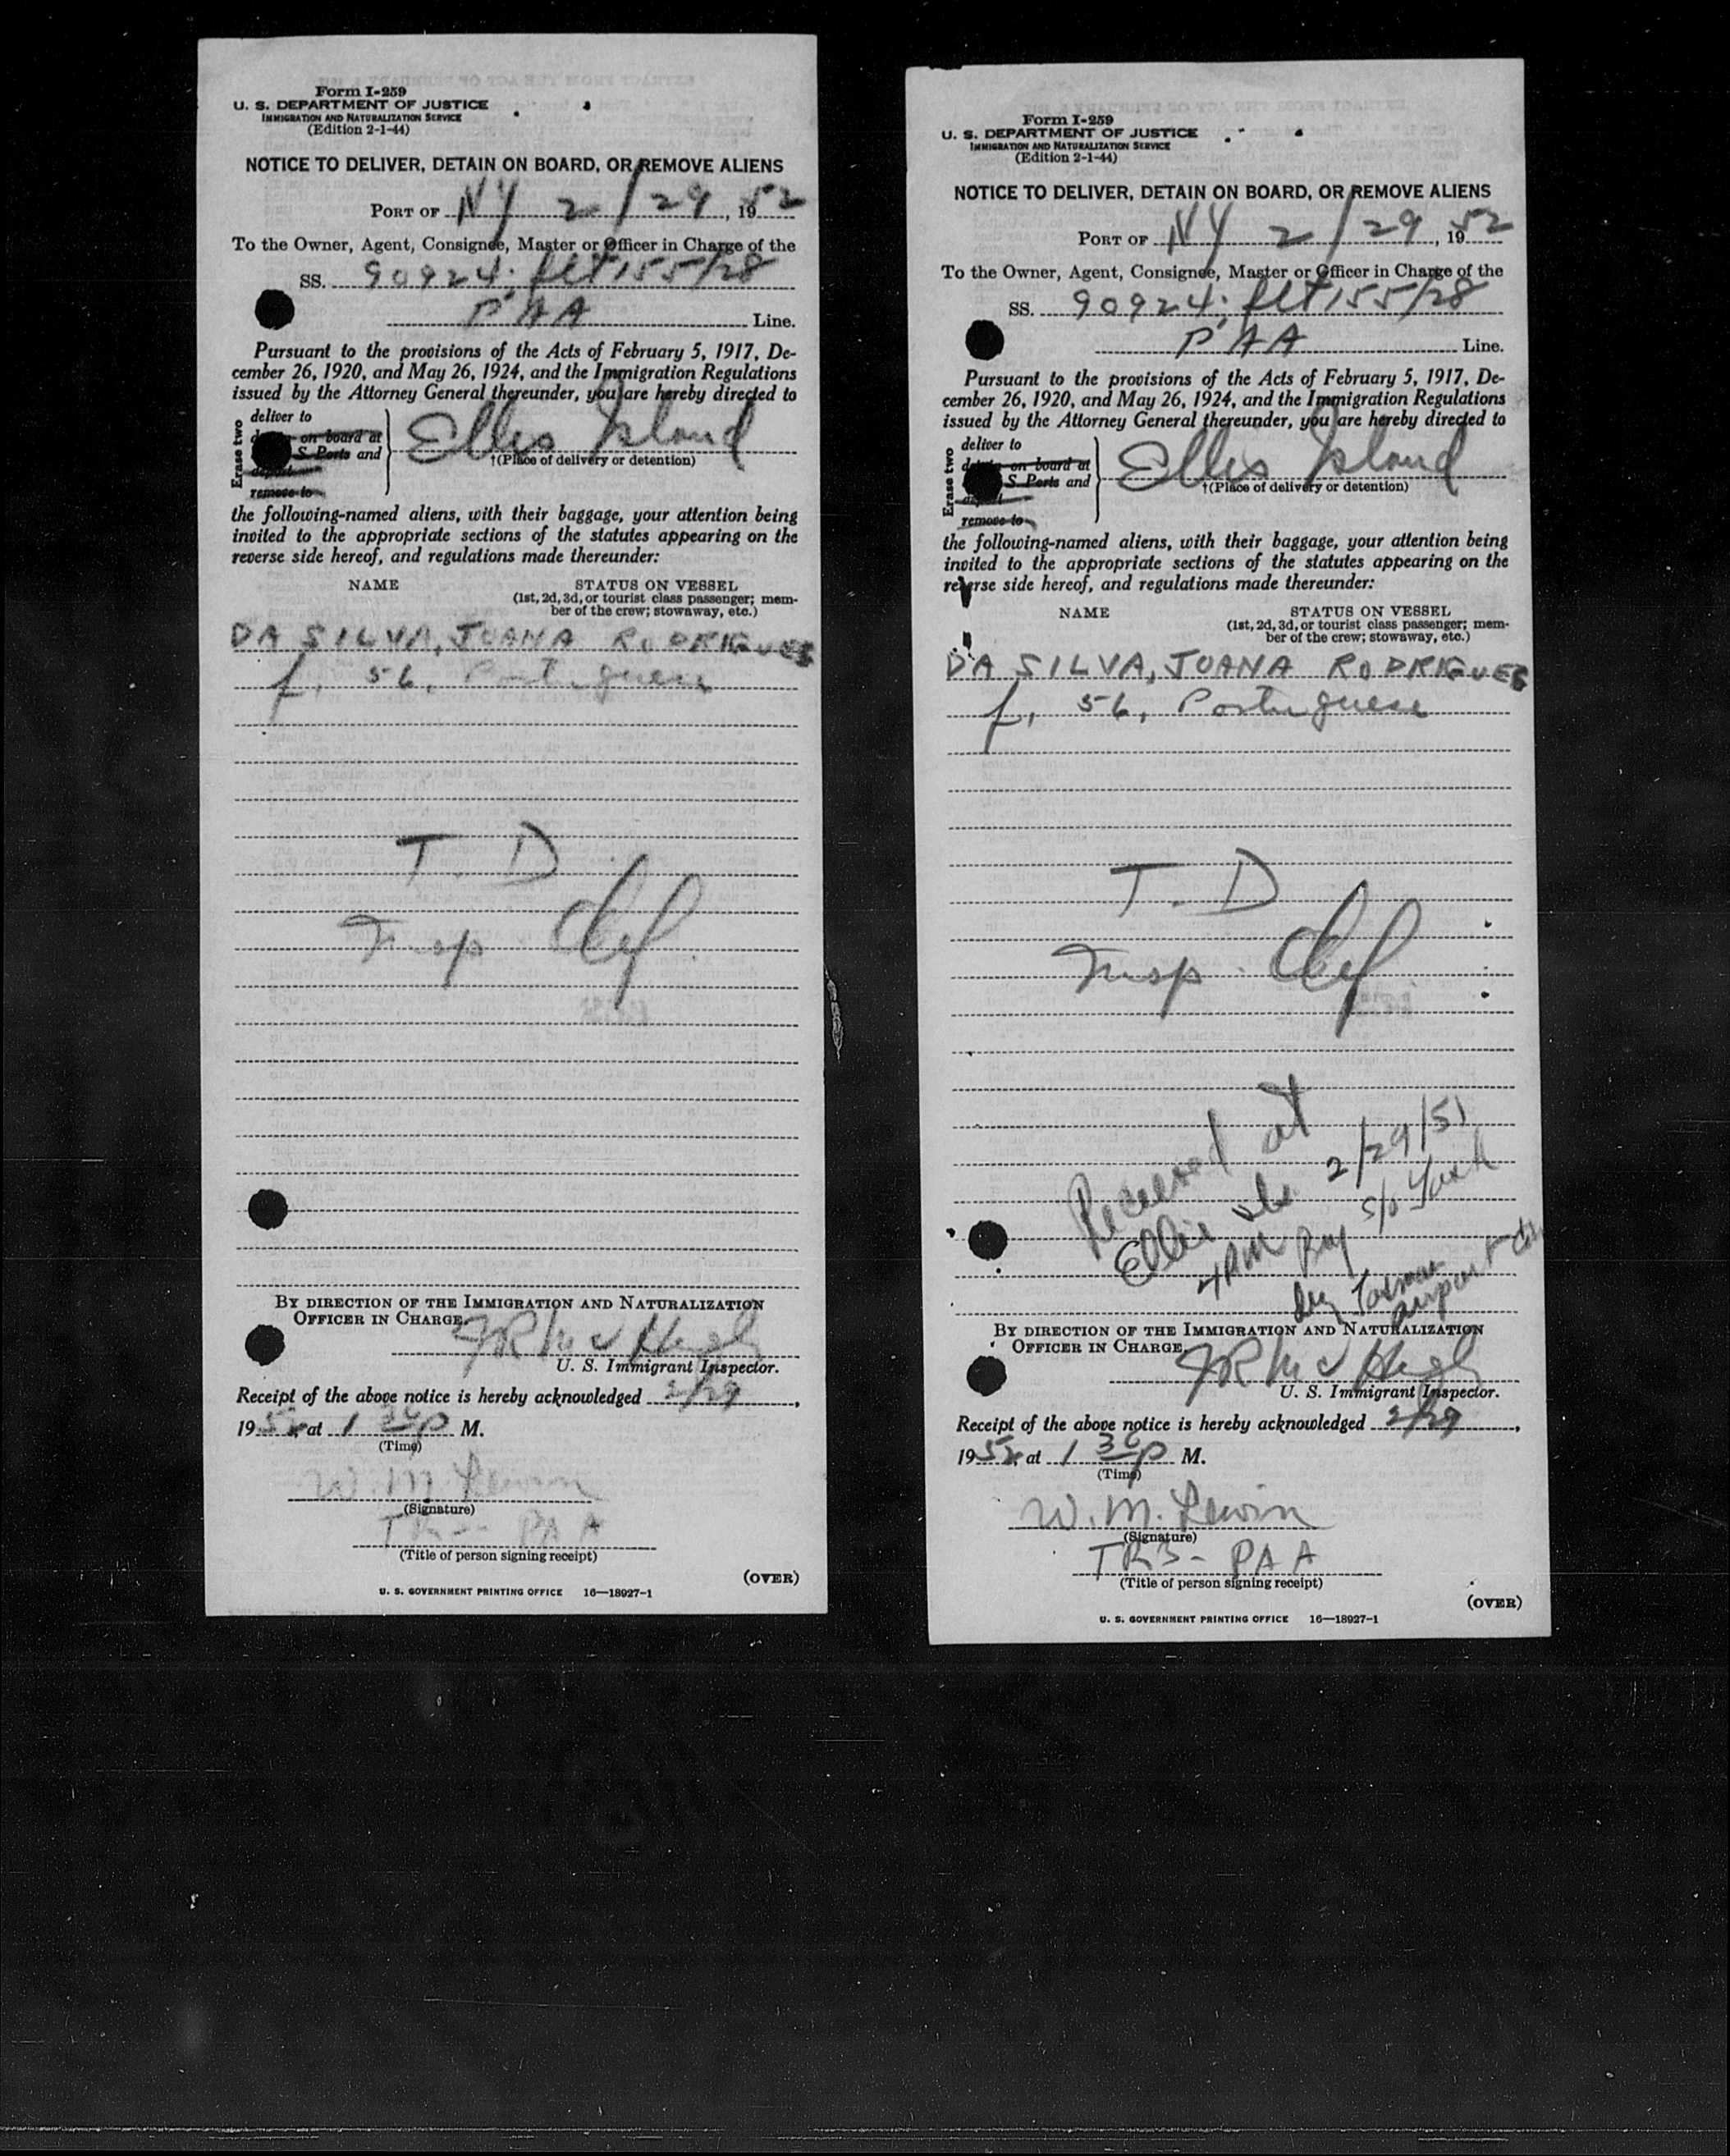 Form I-259
U. S. DEPARTMENT OF JUSTICE
IMMIGRATION AND NATURALIZATION SERVICE
(Edition 2-1-44)
NOTICE TO DELIVER, DETAIN ON BOARD, OR REMOVE ALIENS
PORT OF NY 2/29, 1952
To the Owner, Agent, Consignee, Master or Officer in Charge of the
SS. 90924; flt 155/28
PAA Line.
Pursuant to the provisions of the Acts of February 5, 1917, De-
cember 26, 1920, and May 26, 1924, and the Immigration Regulations
issued by the Attorney General thereunder, you are hereby directed to
Erase two
deliver to
on board at
S. Ports and
remove to
Ellis Island
†(Place of delivery or detention)
the following-named aliens, with their baggage, your attention being
invited to the appropriate sections of the statutes appearing on the
reverse side hereof, and regulations made thereunder:
NAME STATUS ON VESSEL
(1st, 2d, 3d, or tourist class passenger; mem-
ber of the crew; stowaway, etc.)
DA SILVA, JOANA RODRIGUES
f, 56, Portuguese
T. D
Insp.
BY DIRECTION OF THE IMMIGRATION AND NATURALIZATION
OFFICER IN CHARGE.
JR McHugh
U. S. Immigrant Inspector.
Receipt of the above notice is hereby acknowledged 2/29,
1952, at 1 30 p M.
(Time)
W. M. Lewin
(Signature)
TRS - PAA
(Title of person signing receipt)
(OVER)
U. S. GOVERNMENT PRINTING OFFICE 16—18927-1
Form I-259
U. S. DEPARTMENT OF JUSTICE
IMMIGRATION AND NATURALIZATION SERVICE
(Edition 2-1-44)
NOTICE TO DELIVER, DETAIN ON BOARD, OR REMOVE ALIENS
PORT OF NY 2/29, 1952
To the Owner, Agent, Consignee, Master or Officer in Charge of the
SS. 90924; flt 155/28
PAA Line.
Pursuant to the provisions of the Acts of February 5, 1917, De-
cember 26, 1920, and May 26, 1924, and the Immigration Regulations
issued by the Attorney General thereunder, you are hereby directed to
Erase two
deliver to
on board at
S. Ports and
remove to
Ellis Island
†(Place of delivery or detention)
the following-named aliens, with their baggage, your attention being
invited to the appropriate sections of the statutes appearing on the
reverse side hereof, and regulations made thereunder:
NAME STATUS ON VESSEL
(1st, 2d, 3d, or tourist class passenger; mem-
ber of the crew; stowaway, etc.)
DA SILVA, JOANA RODRIGUES
f, 56, Portuguese
T. D
Insp.
Received at
Ellis 2/29/51
4 PM
airport
BY DIRECTION OF THE IMMIGRATION AND NATURALIZATION
OFFICER IN CHARGE.
JR McHugh
U. S. Immigrant Inspector.
Receipt of the above notice is hereby acknowledged 2/29,
1952, at 1 30 p M.
(Time)
W. M. Lewin
(Signature)
TRS - PAA
(Title of person signing receipt)
(OVER)
U. S. GOVERNMENT PRINTING OFFICE 16—18927-1